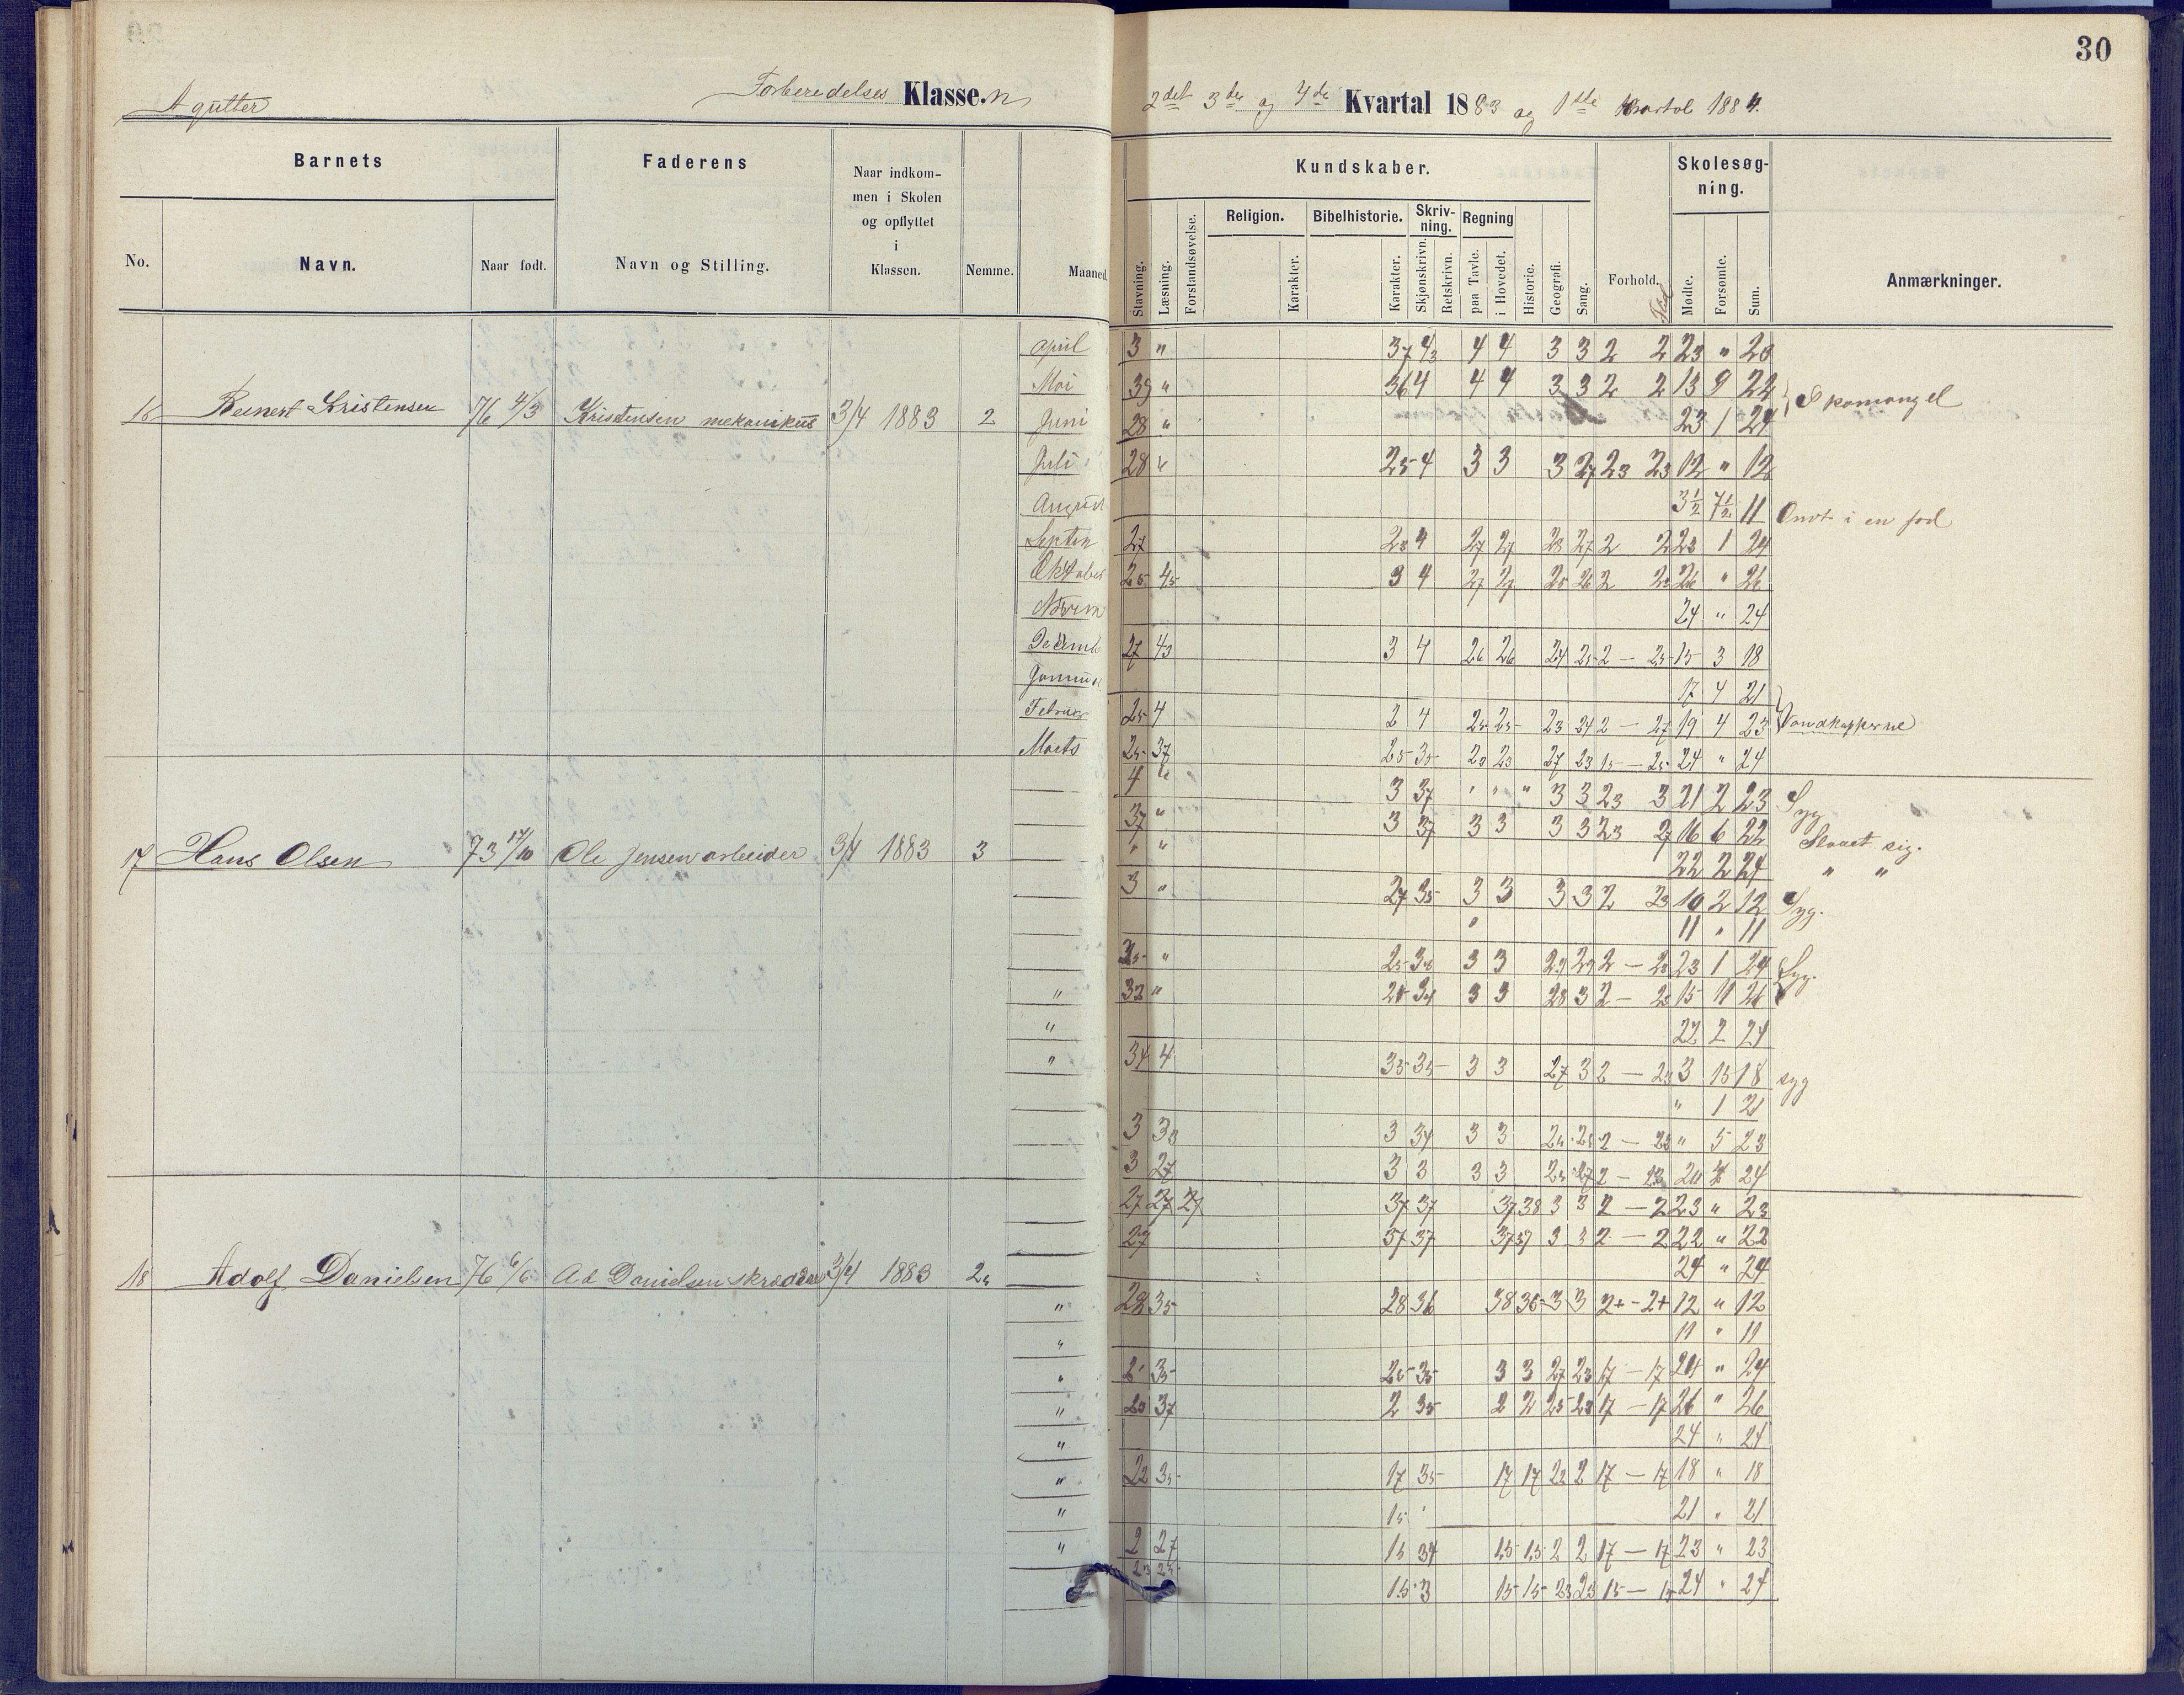 30
A gutter Forberedelses Klasse.n 2det 3die og 4de Kvartal 1883 og 1ste Kvartal 1884.
Barnets Faderens Naar indkommen i Skolen og opflyttet i Klassen. Nemme. Maaned.
No. Navn. Naar født. Navn og Stilling.
Kundskaber. Forhold. Flid Skolesøgning. Anmærkninger.
Stavning. Læsning. Forstandsøvelse. Religion. Karakter. Bibelhistorie. Karakter. Skrivning. Skjønskrivn. Retskrivn. Regning paa Tavle. i Hovedet. Historie. Geografi. Sang. Mødte. Forsømte. Sum.
16 Reinert Kristensen 76 4/3 Kristensen mekanikus 3/4 1883 2
April 3 " 37 4 4 3 3 2 2 23 "
Mai 39 " 36 4 4 4 3 3 2 2 13 9 22 Skomangel
Juni 28 " 23 1 24
Juli 28 " 25 4 3 3 3 27 23 23 12 " 12
August 3½ 7½ 11 Ondt i en fod
Septem 27 23 4 27 27 23 27 2 2 23 1 24
Oktober 25 45 3 4 27 27 25 26 2 23 26 " 26
Novem 24 " 24
Decemb 27 43 3 4 26 26 24 25 2 — 25 15 3 18
Januar 17 4 21
Februar 25 4 2 4 25 25 23 24 2 — 27 19 4 23 Vandkopperne
Marts 25 37 25 35 23 23 27 23 15 — 25 24 " 24
17 Hans Olsen 73 17/10 Ole Jensen arbeider 3/4 1883 3
4 " 3 37 " " " 3 3 23 3 21 2 23 Syg
37 " 3 37 3 3 3 3 23 27 16 6 22 Slaaet sig.
" " 22 2 24 " "
3 " 27 35 3 3 3 3 2 23 10 2 12 Syg.
11 " 11
35 " 25 36 3 3 29 29 2 — 23 23 1 24 Syg.
32 " 34 3 3 28 3 2 — 23 15 11 26
22 2 24
34 4 35 35 3 3 27 3 2 — 23 3 15 18 syg
" 1 21
3 33 3 34 3 3 2 — 23 " 5 23
3 27 3 3 3 3 25 27 2 — 23 20 4 24
18 Adolf Danielsen 76 6/6 Ad Danielsen skrædder 3/4 1883
27 27 27 37 37 37 38 3 3 2 — 2 23 " 23
27 37 37 37 37 3 3 2 — 2 22 " 22
24 " 24
28 35 28 36 38 36 3 3 2+ - 2+ 12 " 12
11 " 11
35 25 35 3 3 27 23 17 — 17 24 " 24
23 37 2 35 2 2 25 23 17 — 17 26 " 26
24 " 24
22 35 17 35 17 17 22 2 17 — 17 18 " 18
15 21 " 21
2 27 15 34 15 15 2 2 17 — 17 23 " 23
23 25 15 3 15 15 23 23 15 — 15 24 " 24